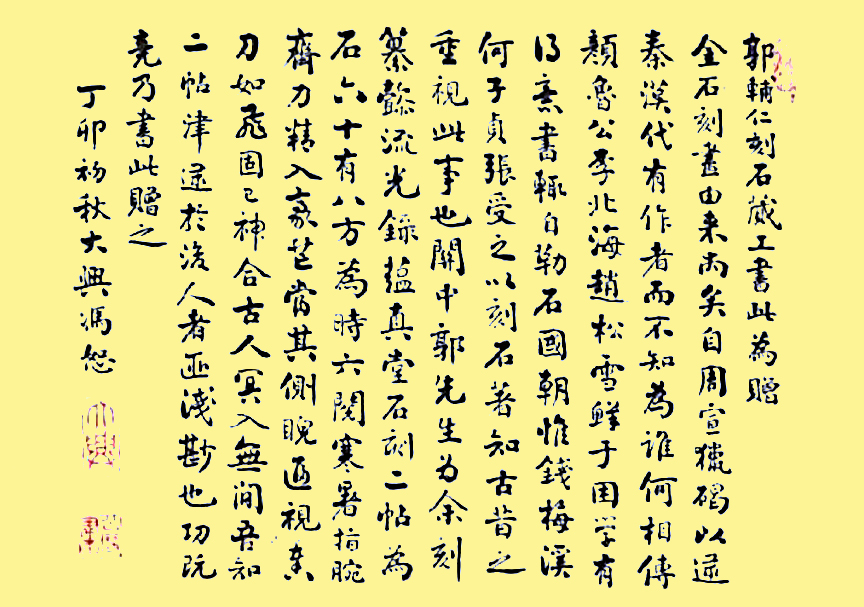 郭輔仁刻石蕆工書此為贈
金石刻畫由来尚矣自周宣獵碣以迄
秦漢代有作者而不知為誰何相傳
顏魯公李北海趙松雪鮮于困学有
得意書輒自勒石國朝惟錢梅溪
何子貞張受之以刻石著知古昔之
重視此事也關中郭先生为余刻
篆懿流光錄蘊真堂石刻二帖為
石六十有八方為時六閱寒暑指腕
齊刀精入豪芒嘗其側睨迫視奏
刀如飛固已神合古人冥入無間吾知
二帖津逮於後人者匪淺尠也功既
竟乃書此贈之
丁卯初秋大興馮恕